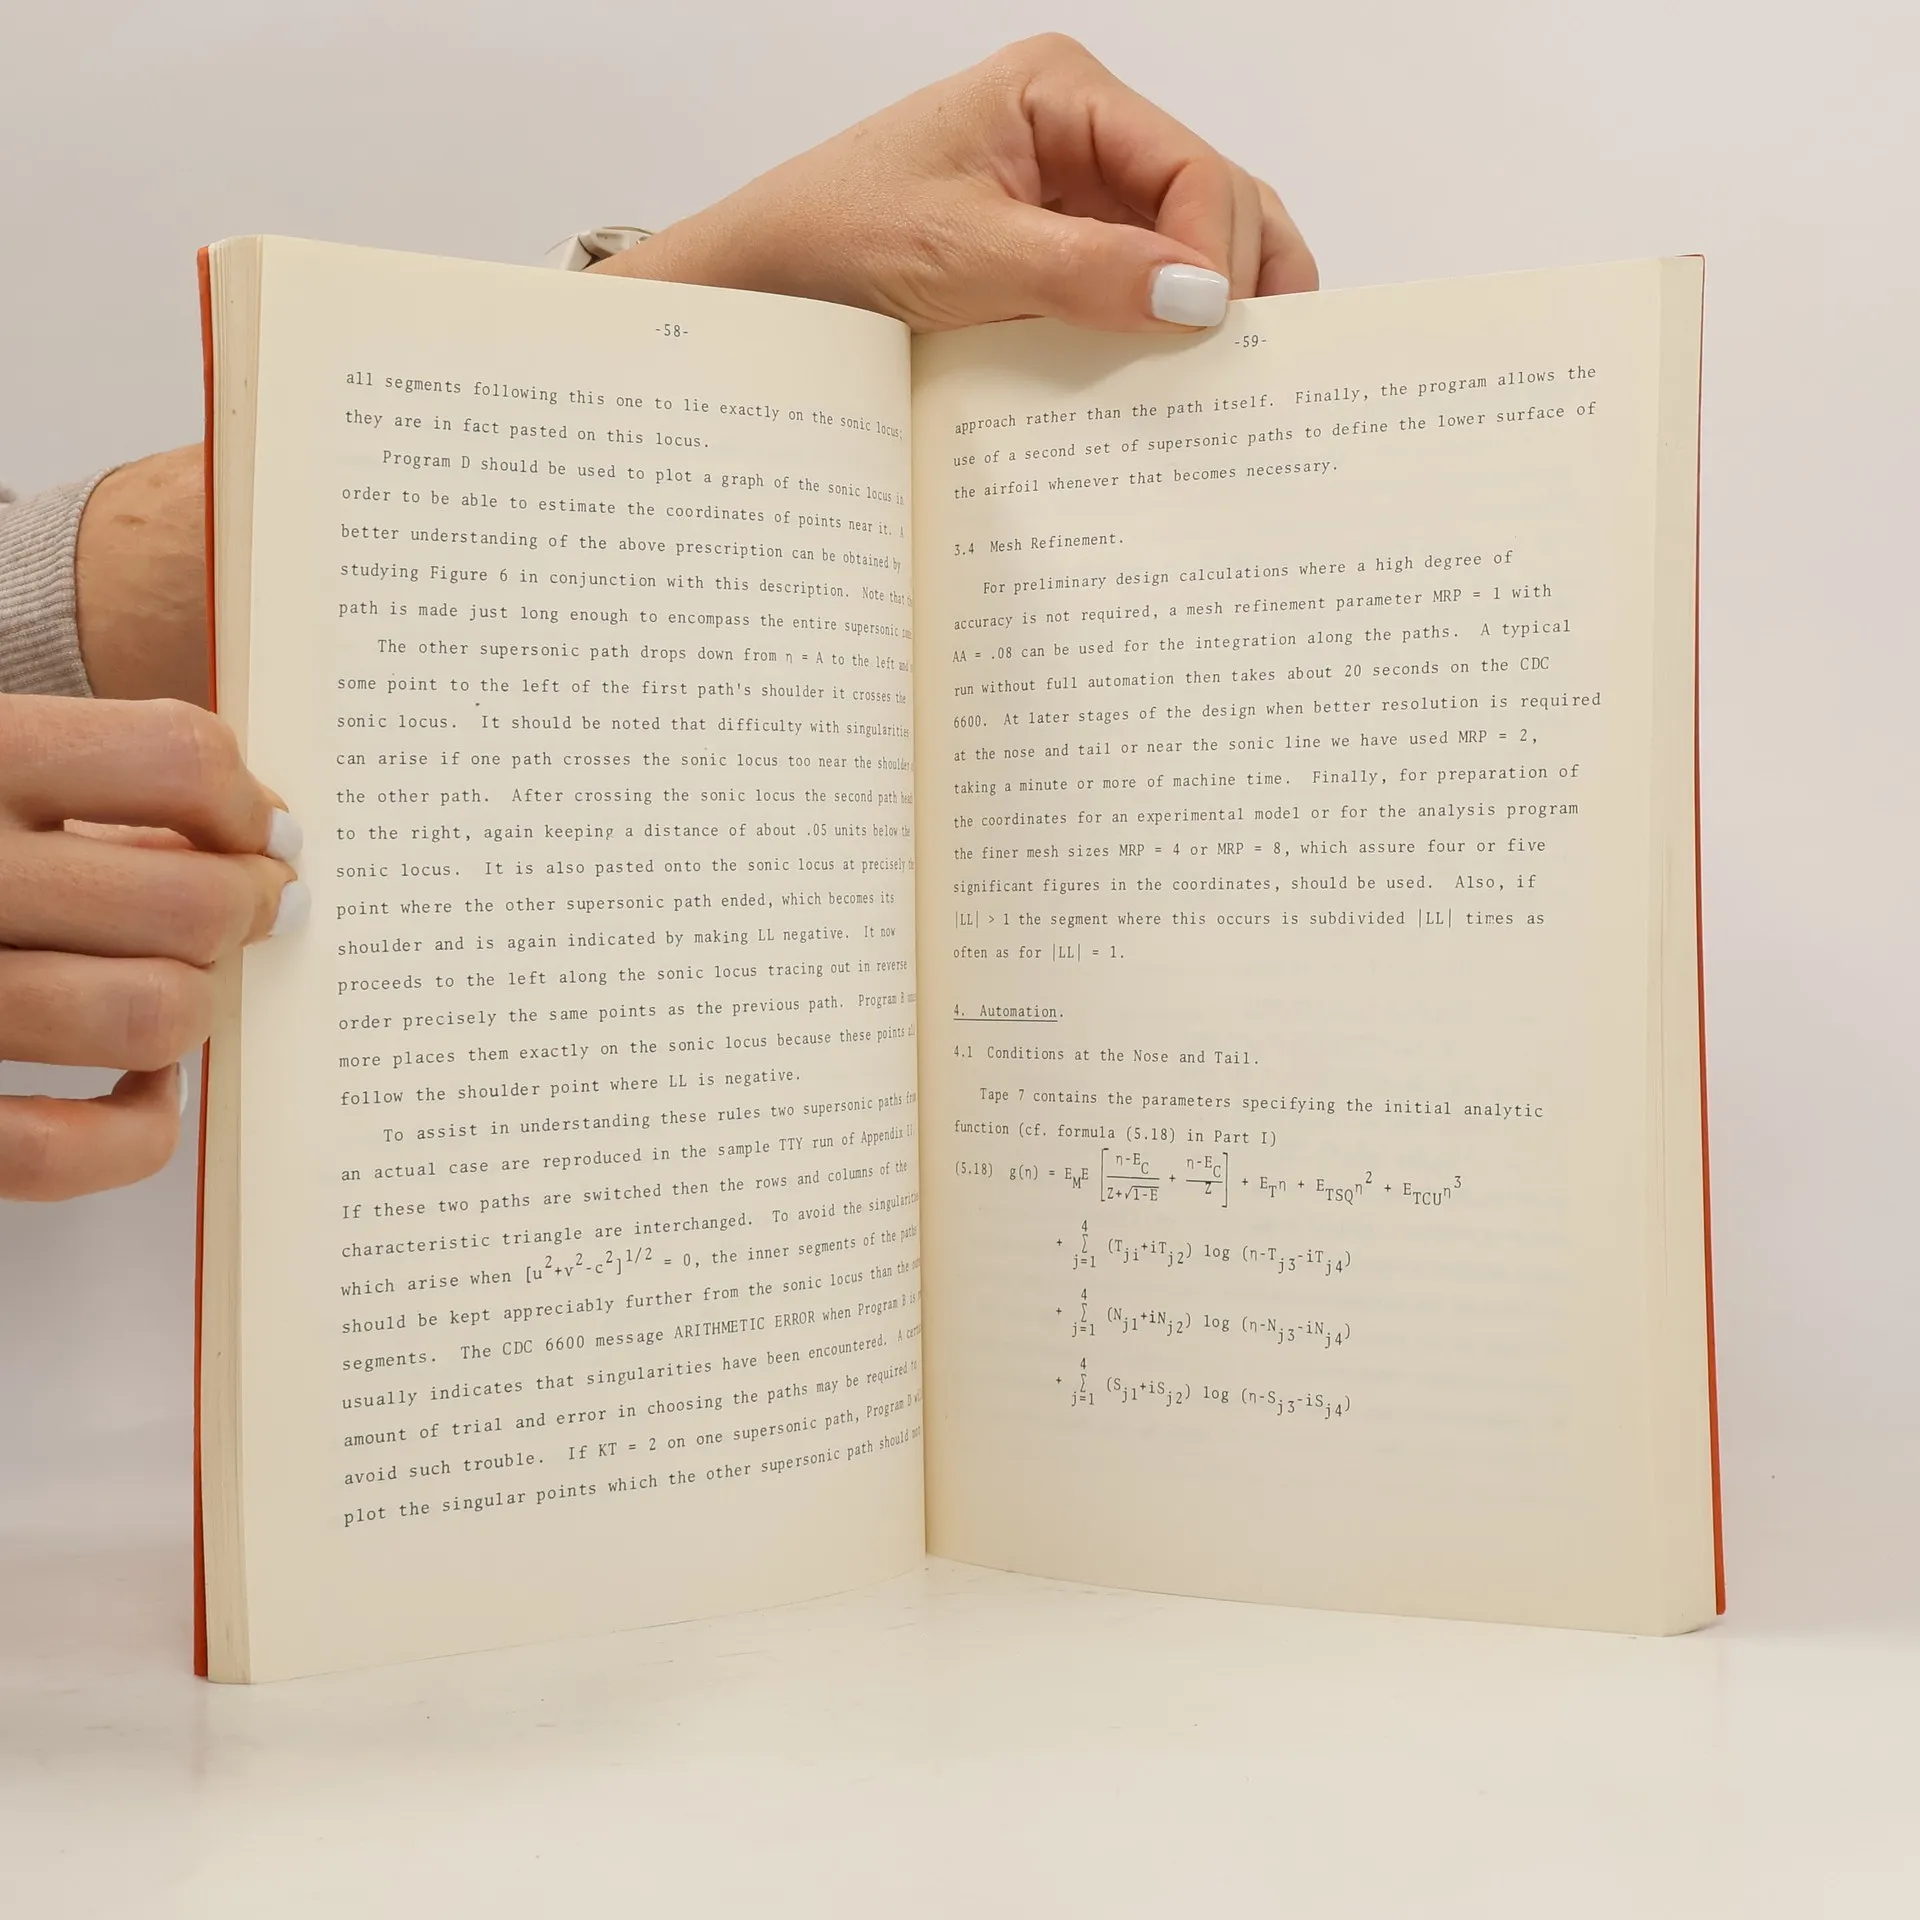 -58-
all segments following this one to lie exactly on the sonic locus;
they are in fact pasted on this locus.
Program D should be used to plot a graph of the sonic locus in
order to be able to estimate the coordinates of points near it. A
better understanding of the above prescription can be obtained by
studying Figure 6 in conjunction with this description. Note that
path is made just long enough to encompass the entire supersonic
The other supersonic path drops down from η = A to the left and
some point to the left of the first path's shoulder it crosses the
sonic locus. It should be noted that difficulty with singularities
can arise if one path crosses the sonic locus too near the shoulder
the other path. After crossing the sonic locus the second path
to the right, again keeping a distance of about .05 units below the
sonic locus. It is also pasted onto the sonic locus at precisely
point where the other supersonic path ended, which becomes its
shoulder and is again indicated by making LL negative. It now
proceeds to the left along the sonic locus tracing out in reverse
order precisely the same points as the previous path. Program B
more places them exactly on the sonic locus because these points
follow the shoulder point where LL is negative.
To assist in understanding these rules two supersonic paths
an actual case are reproduced in the sample TTY run of Appendix II.
If these two paths are switched then the rows and columns of the
characteristic triangle are interchanged. To avoid the singularities
which arise when [u²+v²-c²]^1/2 = 0, the inner segments of the paths
should be kept appreciably further from the sonic locus than the
segments. The CDC 6600 message ARITHMETIC ERROR when Program B is
usually indicates that singularities have been encountered. A
amount of trial and error in choosing the paths may be required to
avoid such trouble. If KT = 2 on one supersonic path, Program D
plot the singular points which the other supersonic path should not
-59-
approach rather than the path itself. Finally, the program allows the
use of a second set of supersonic paths to define the lower surface of
the airfoil whenever that becomes necessary.
3.4 Mesh Refinement.
For preliminary design calculations where a high degree of
accuracy is not required, a mesh refinement parameter MRP = 1 with
AA = .08 can be used for the integration along the paths. A typical
run without full automation then takes about 20 seconds on the CDC
6600. At later stages of the design when better resolution is required
at the nose and tail or near the sonic line we have used MRP = 2,
taking a minute or more of machine time. Finally, for preparation of
the coordinates for an experimental model or for the analysis program
the finer mesh sizes MRP = 4 or MRP = 8, which assure four or five
significant figures in the coordinates, should be used. Also, if
|LL| > 1 the segment where this occurs is subdivided |LL| times as
often as for |LL| = 1.
4. Automation.
4.1 Conditions at the Nose and Tail.
Tape 7 contains the parameters specifying the initial analytic
function (cf. formula (5.18) in Part I)
(5.18) g(η) = E_M E [(η-E_C)/(Z+√(1-E)) + (η-E_C)/Z] + E_T η + E_TSQ η² + E_TCU η³
+ Σ_{j=1}^4 (T_j1+iT_j2) log (η-T_j3-iT_j4)
+ Σ_{j=1}^4 (N_j1+iN_j2) log (η-N_j3-iN_j4)
+ Σ_{j=1}^4 (S_j1+iS_j2) log (η-S_j3-iS_j4)